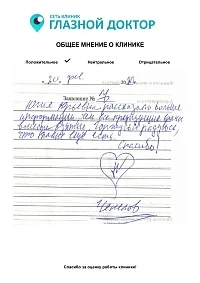 СЕТЬ КЛИНИК
ГЛАЗНОЙ ДОКТОР
ОБЩЕЕ МНЕНИЕ О КЛИНИКЕ
Положительное ✓ Нейтральное Отрицательное
Заявление №
Юлия Юрьевна рассказала больше
информации, чем все предыдущие врачи
вместе взятые.
что такие еще есть.
Спасибо!
Спасибо за оценку работы клиники!